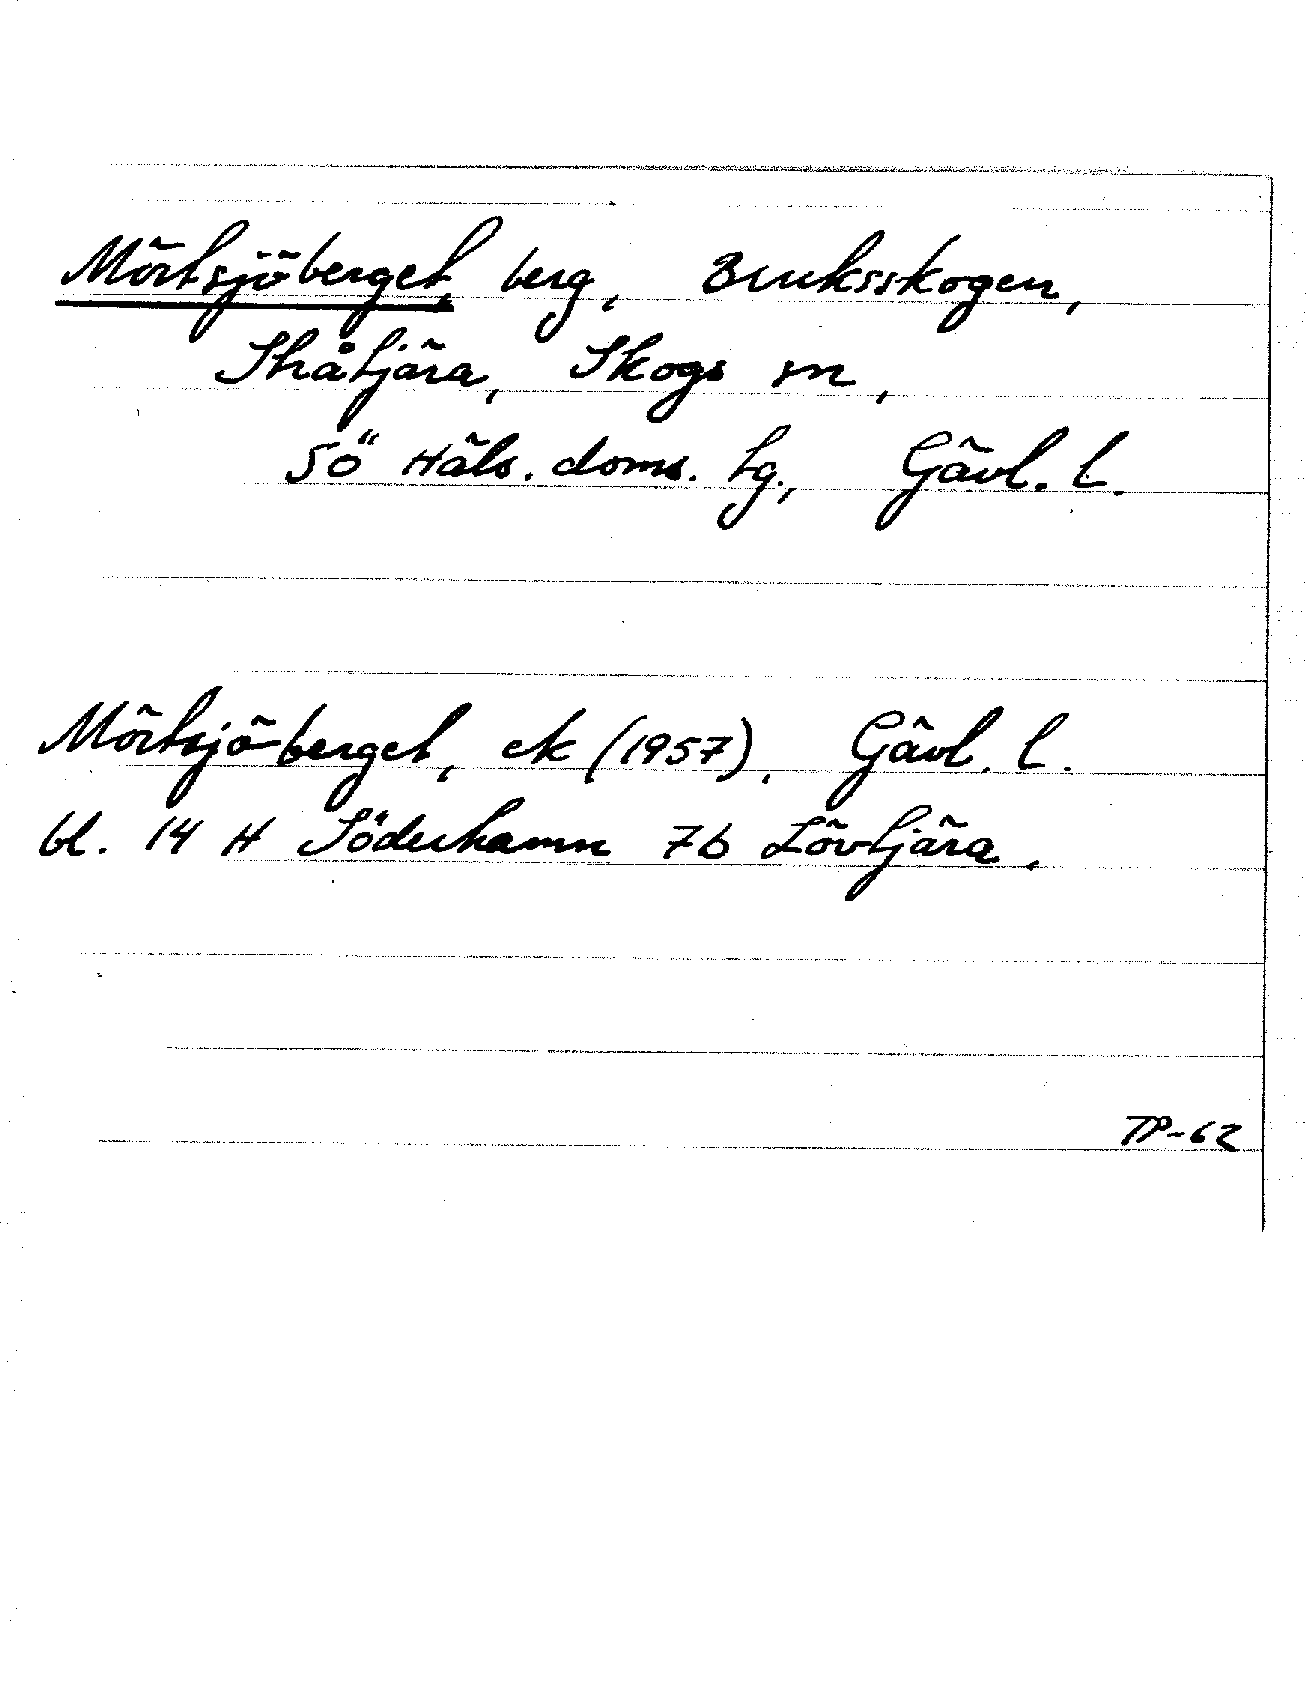 Mörtsjöberget, berg, Bruksskogen,
Stråtjära, Skogs sn,
Sö Häls. doms. tg., Gävl. l.
Mörtsjöberget, ek (1957), Gävl. l.
bl. 14 H Söderhamn 7b Lövtjära.
TP-62